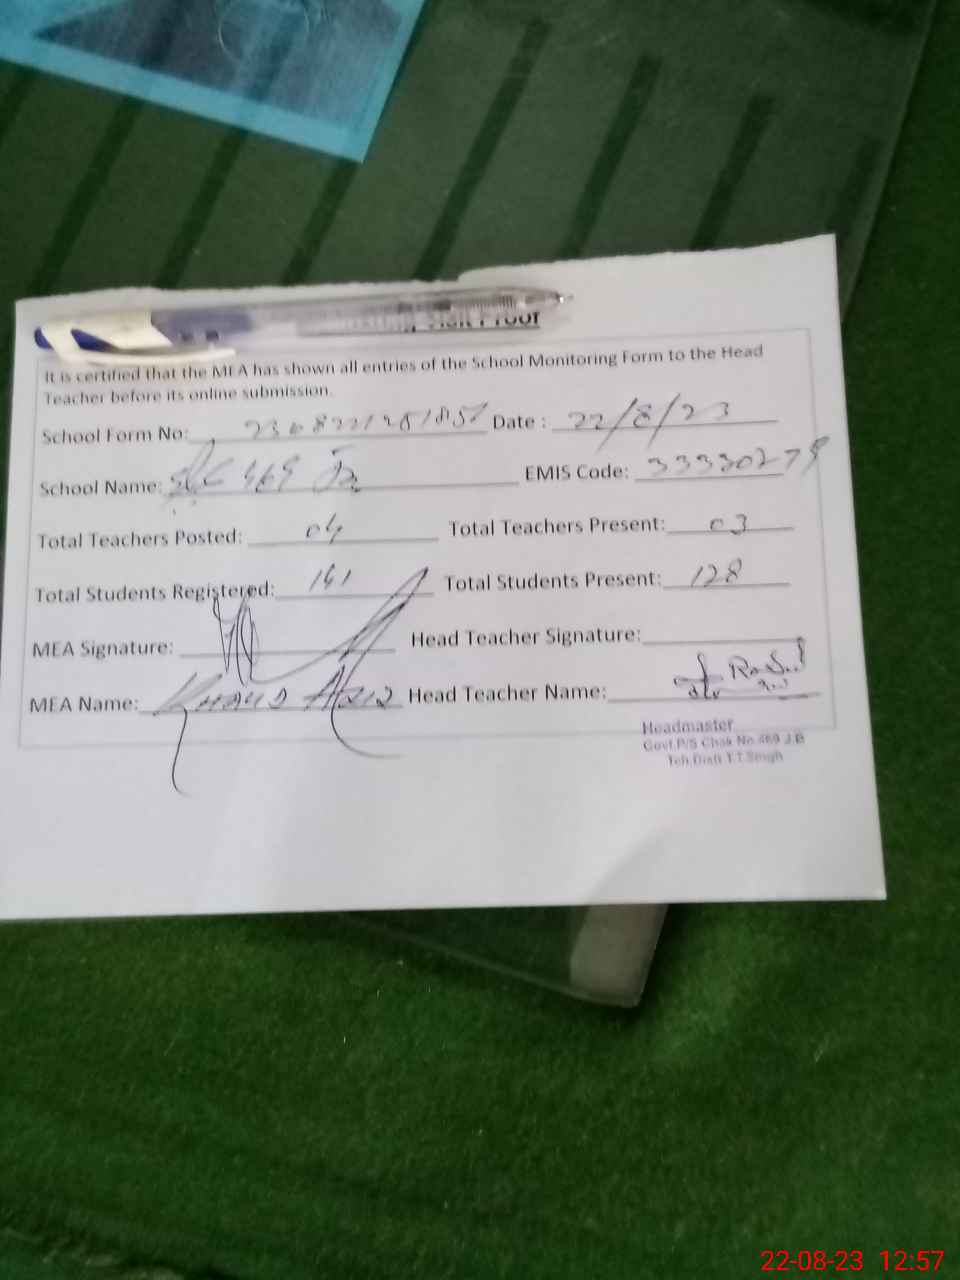 Visit Proof
It is certified that the MEA has shown all entries of the School Monitoring Form to the Head
Teacher before its online submission.
School Form No: Date : 22/8/23
School Name: 469 EMIS Code: 33330279
Total Teachers Posted: 04 Total Teachers Present: 03
Total Students Registered: 161 Total Students Present: 128
MEA Signature: Head Teacher Signature:
MEA Name: Khalid Aziz Head Teacher Name:
Headmaster
Govt.P/S Chak No.469 J.B
Teh.Distt T.T.Singh
22-08-23 12:57